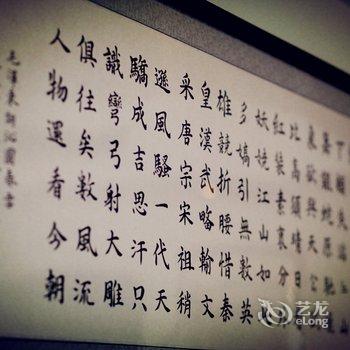 象欲與天公
比高須晴日
紅裝素裹分
妖嬈江山如
多嬌引無數英
雄競折腰惜秦
皇漢武略輸文
采唐宗宋祖稍
遜風騷一代天
驕成吉思汗只
識彎弓射大雕
俱往矣數風流
人物還看今朝
毛澤東詞沁園春雪
艺龙
eLong